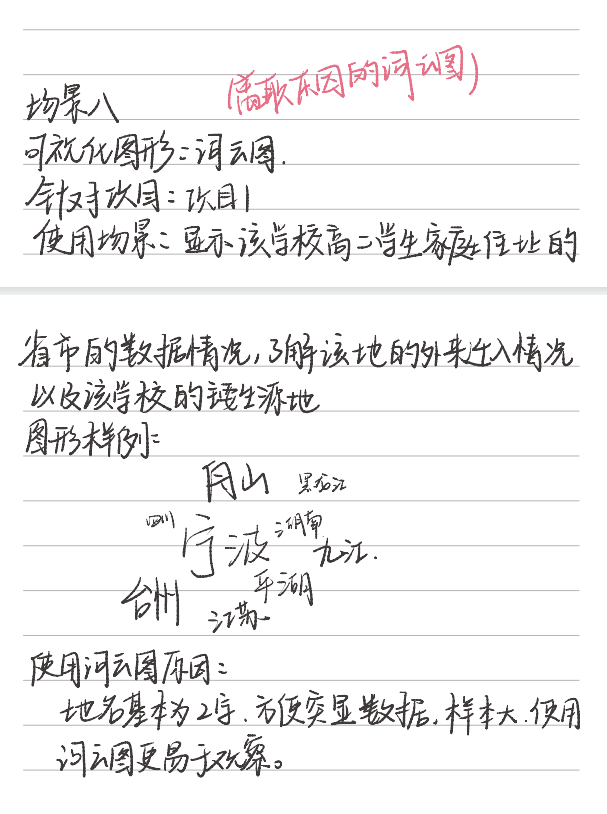 离职原因的词云图)
场景八
可视化图形：词云图.
针对项目：项目1
使用场景：显示该学校高二学生家庭住址的
省市的数据情况,了解该地的外来迁入情况
以及该学校的主要生源地
图形样例：
舟山 黑龙江
四川 宁波 湖南 九江.
台州 平湖
江苏
使用词云图原因：
地名基本为2字.方便突显数据.样本大.使用
词云图更易于观察。